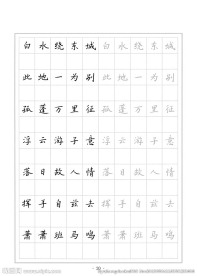 白水绕东城白水绕东城
此地一为别此地一为别
孤蓬万里征孤蓬万里征
浮云游子意浮云游子意
落日故人情落日故人情
挥手自兹去挥手自兹去
萧萧班马鸣萧萧班马鸣